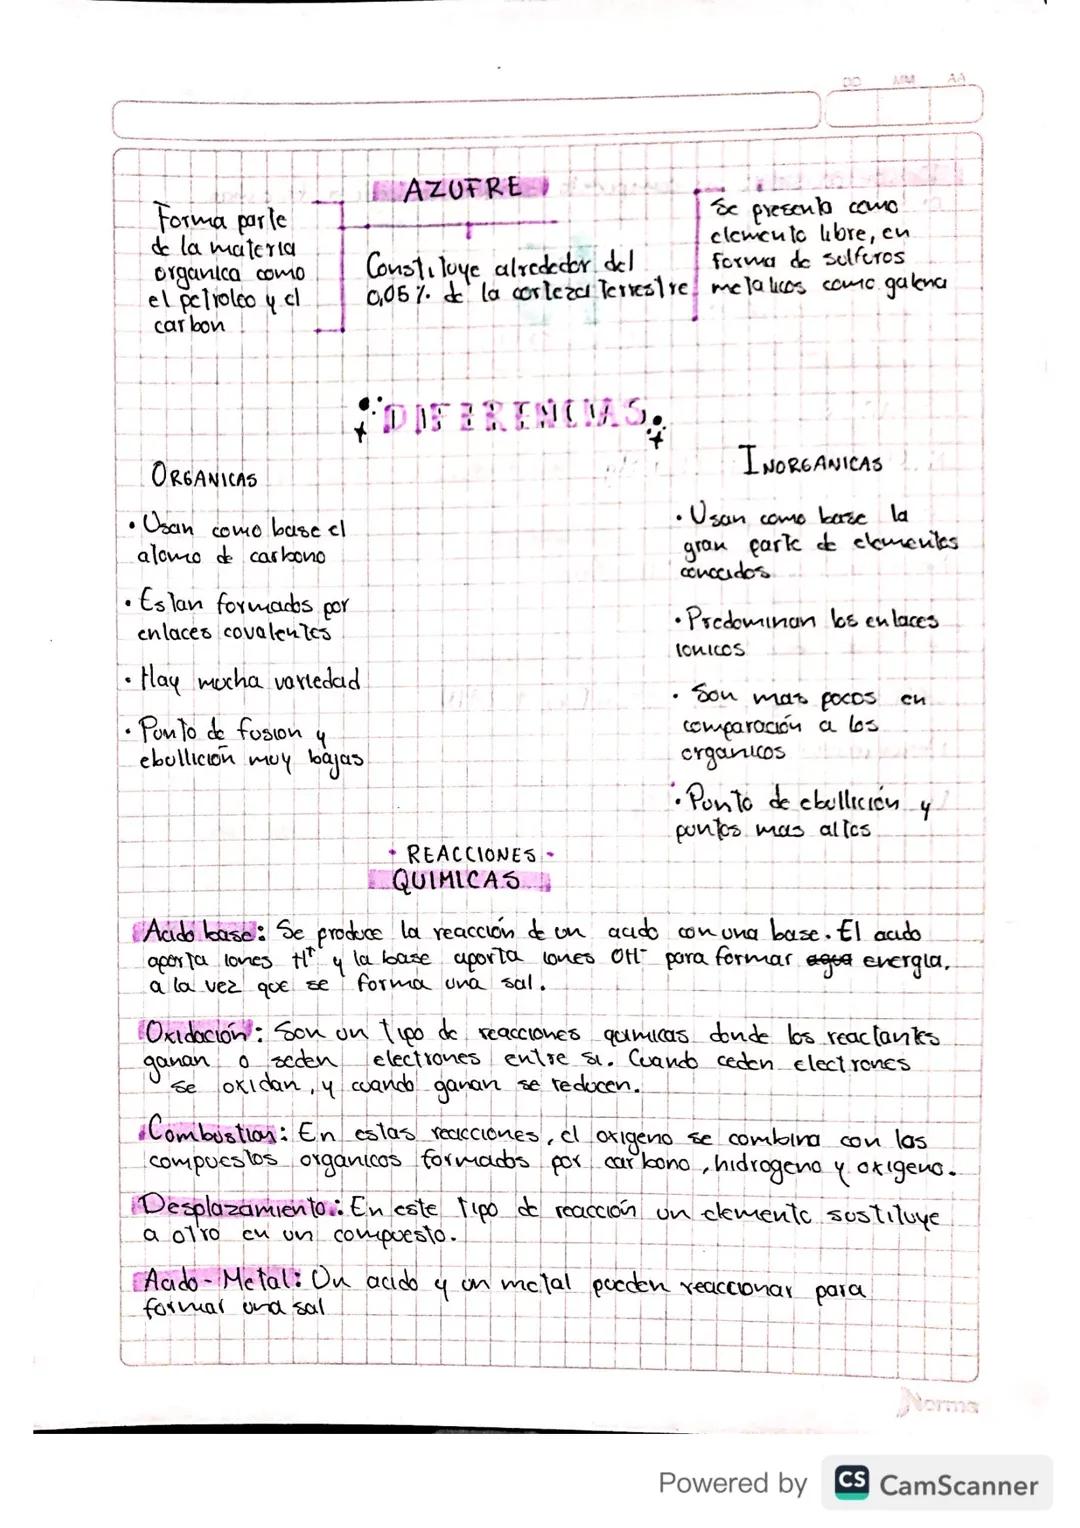 DD MM AA
AZUFRE
Forma parte
de la materia
organica como
el petroleo y el
carbon
Constituye alrededor del
0,05% de la corteza terrestre
Se presenta como
elemento libre, en
forma de sulfuros
metalicos como galena
DIFERENCIAS
ORGANICAS
• Usan como base el
atomo de carbono
• Estan formados por
enlaces covalentes
• Hay mucha variedad
• Punto de fusion y
ebullición muy bajas
INORGANICAS
• Usan como base la
gran parte de elementos
conocidos
• Predominan los enlaces
ionicos
• Son mas pocos en
comparación a los
organicos
• Punto de ebullición y
puntos mas altos
• REACCIONES •
QUIMICAS
Acido base: Se produce la reacción de un acido con una base. El acido
aporta iones H+ y la base aporta iones OH- para formar agua energia,
a la vez que se forma una sal.
Oxidación: Son un tipo de reacciones quimicas donde los reactantes
ganan o seden electrones entre si. Cuando ceden electrones
se oxidan, y cuando ganan se reducen.
Combustion: En estas reacciones, el oxigeno se combina con las
compuestos organicos formados por carbono, hidrogeno y oxigeno.
Desplazamiento.: En este tipo de reacción un elemento sustituye
a otro en un compuesto.
Acido-Metal: Un acido y un metal pueden reaccionar para
formar una sal
Norma
Powered by CS CamScanner